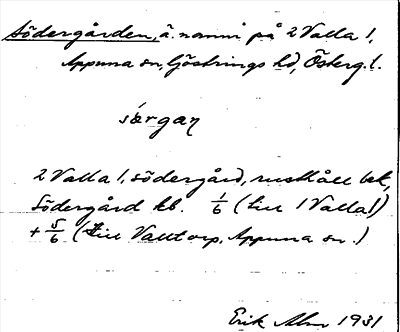 Södergården, ä. namn på 2 Valla 1,
Appuna sn, Göstrings hd, Österg. l.
sə́rgaɲ
2 Valla 1, södergård, rusthåll bek,
Södergård kb. 1/6 (till 1 Valla1)
+ 5/6 (till Valltorp, Appuna sn.)
Erik Alm 1931